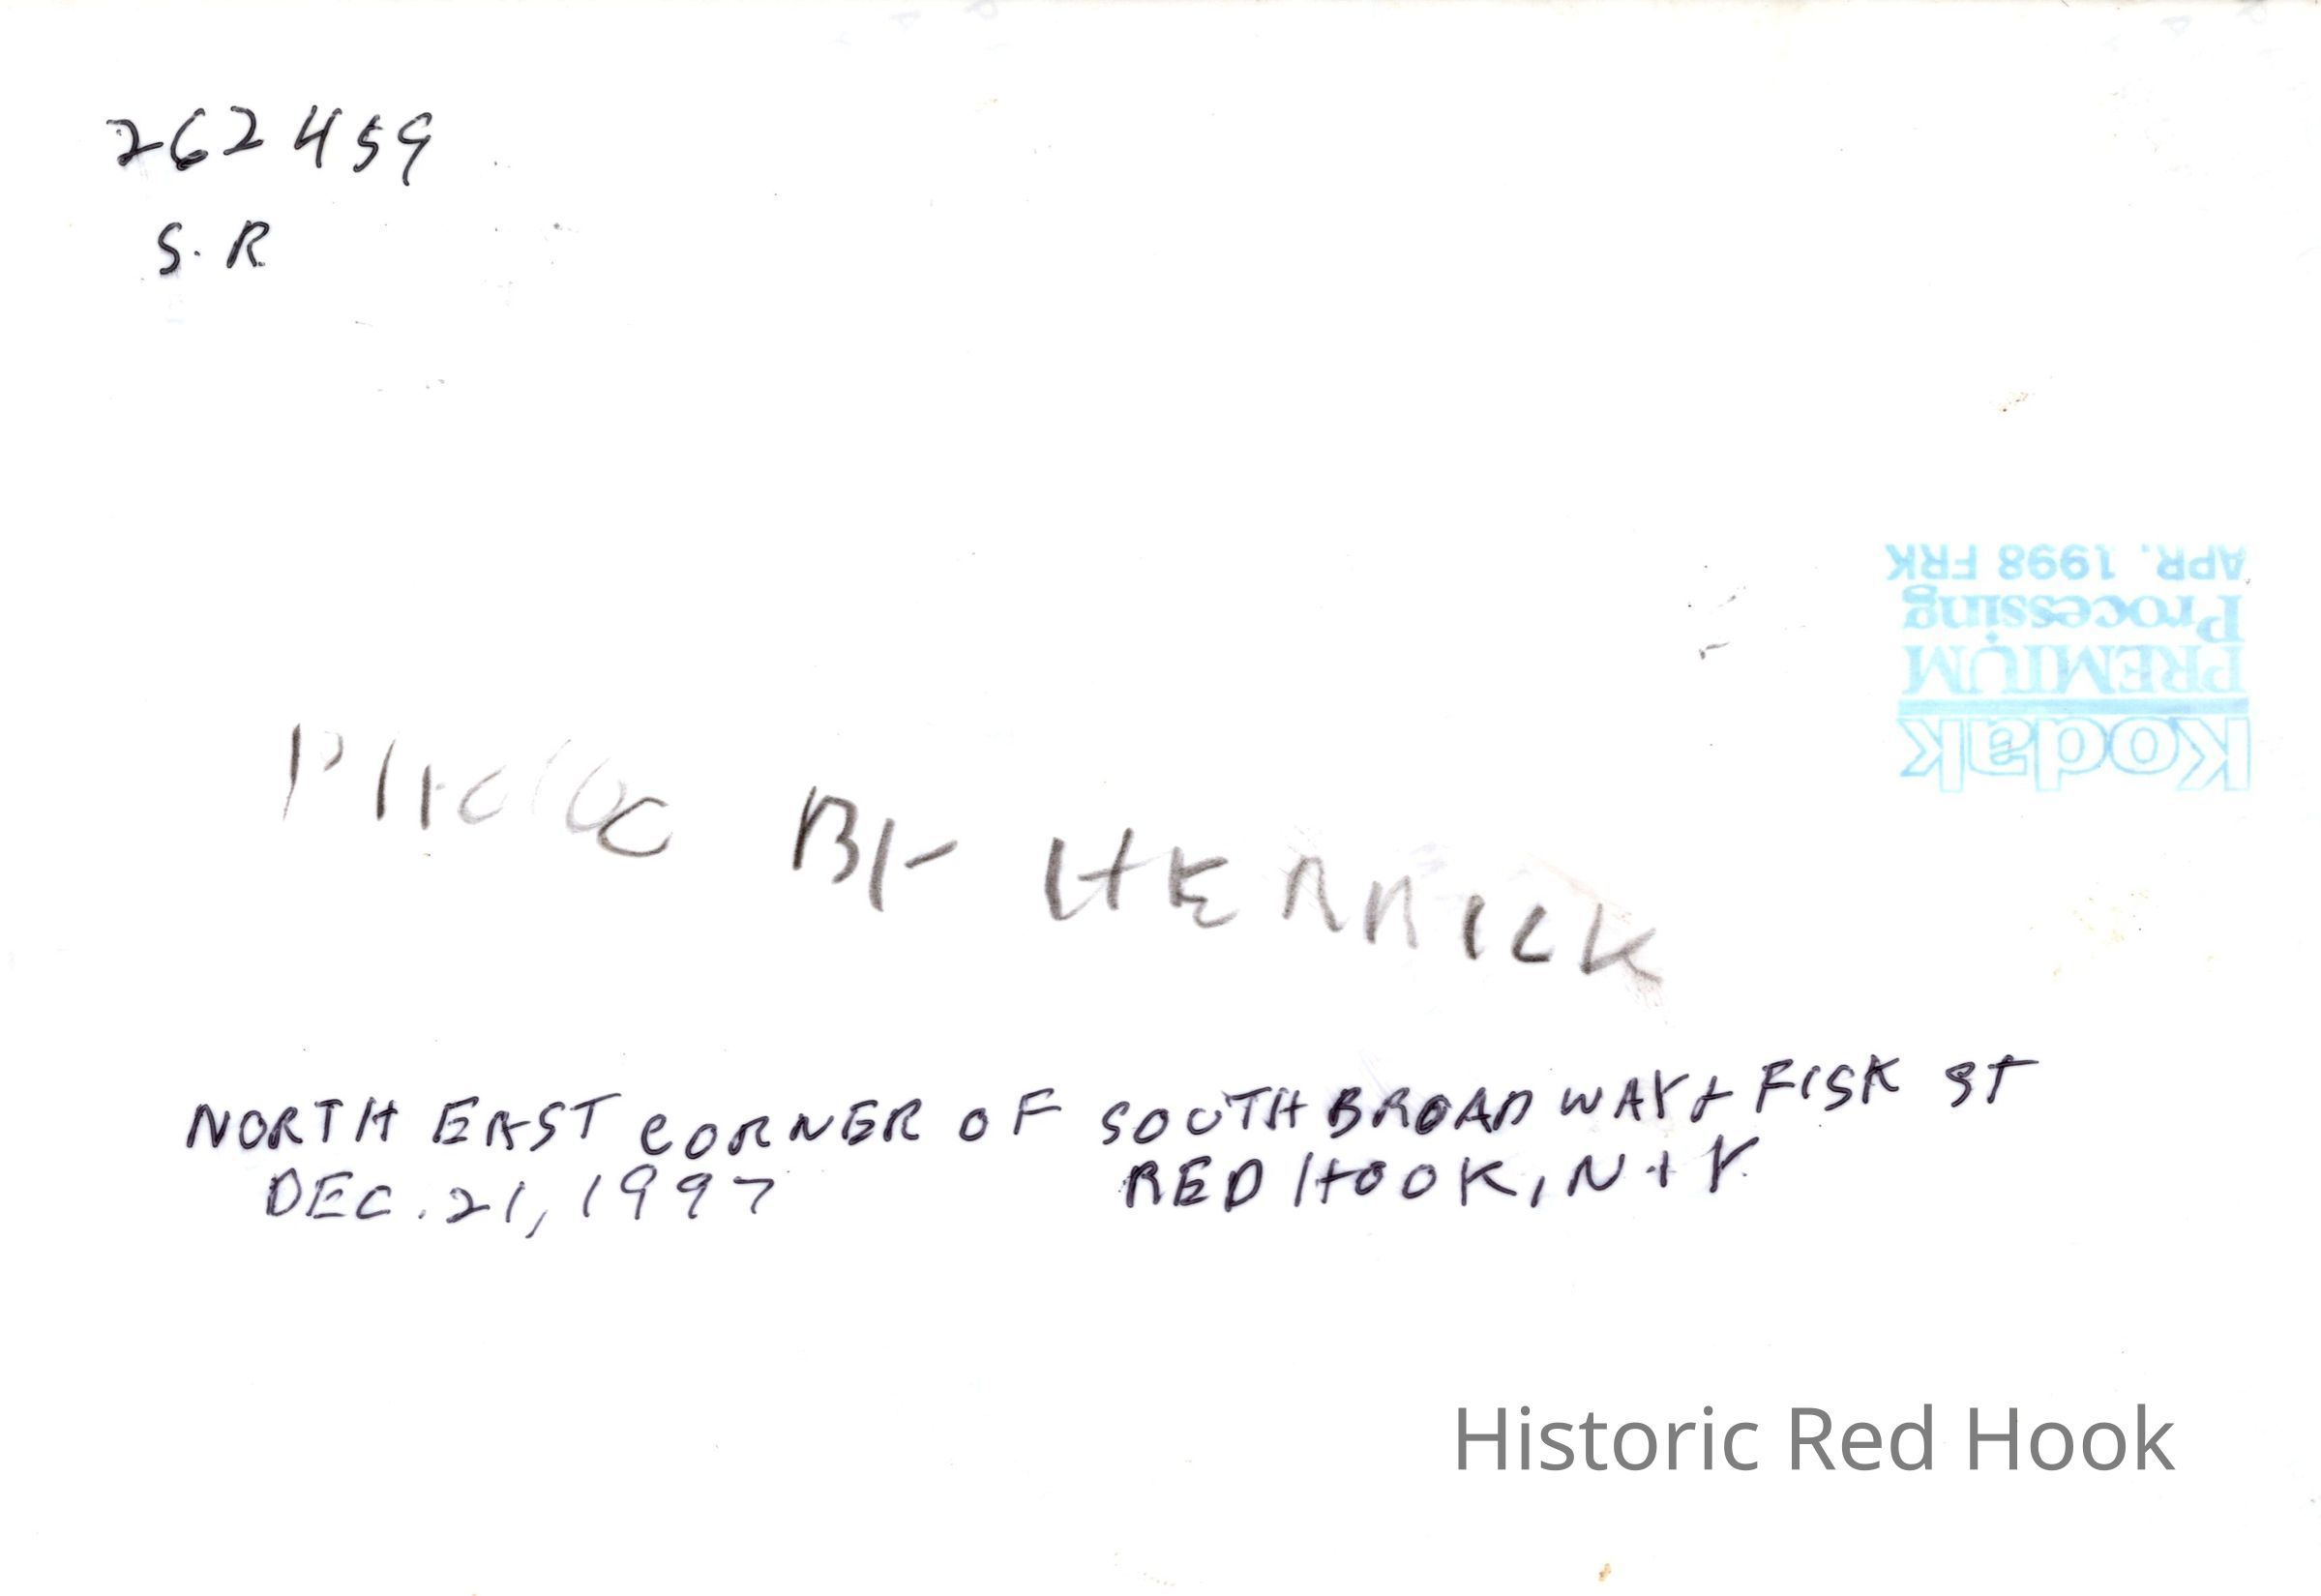 262459
S. R
APR. 1998 FRK
Processing
PREMIUM
Kodak
PHOTO BY HERRICK
NORTH EAST CORNER OF SOUTH BROADWAY & FISK ST
DEC. 21, 1997 RED HOOK, N.Y.
Historic Red Hook